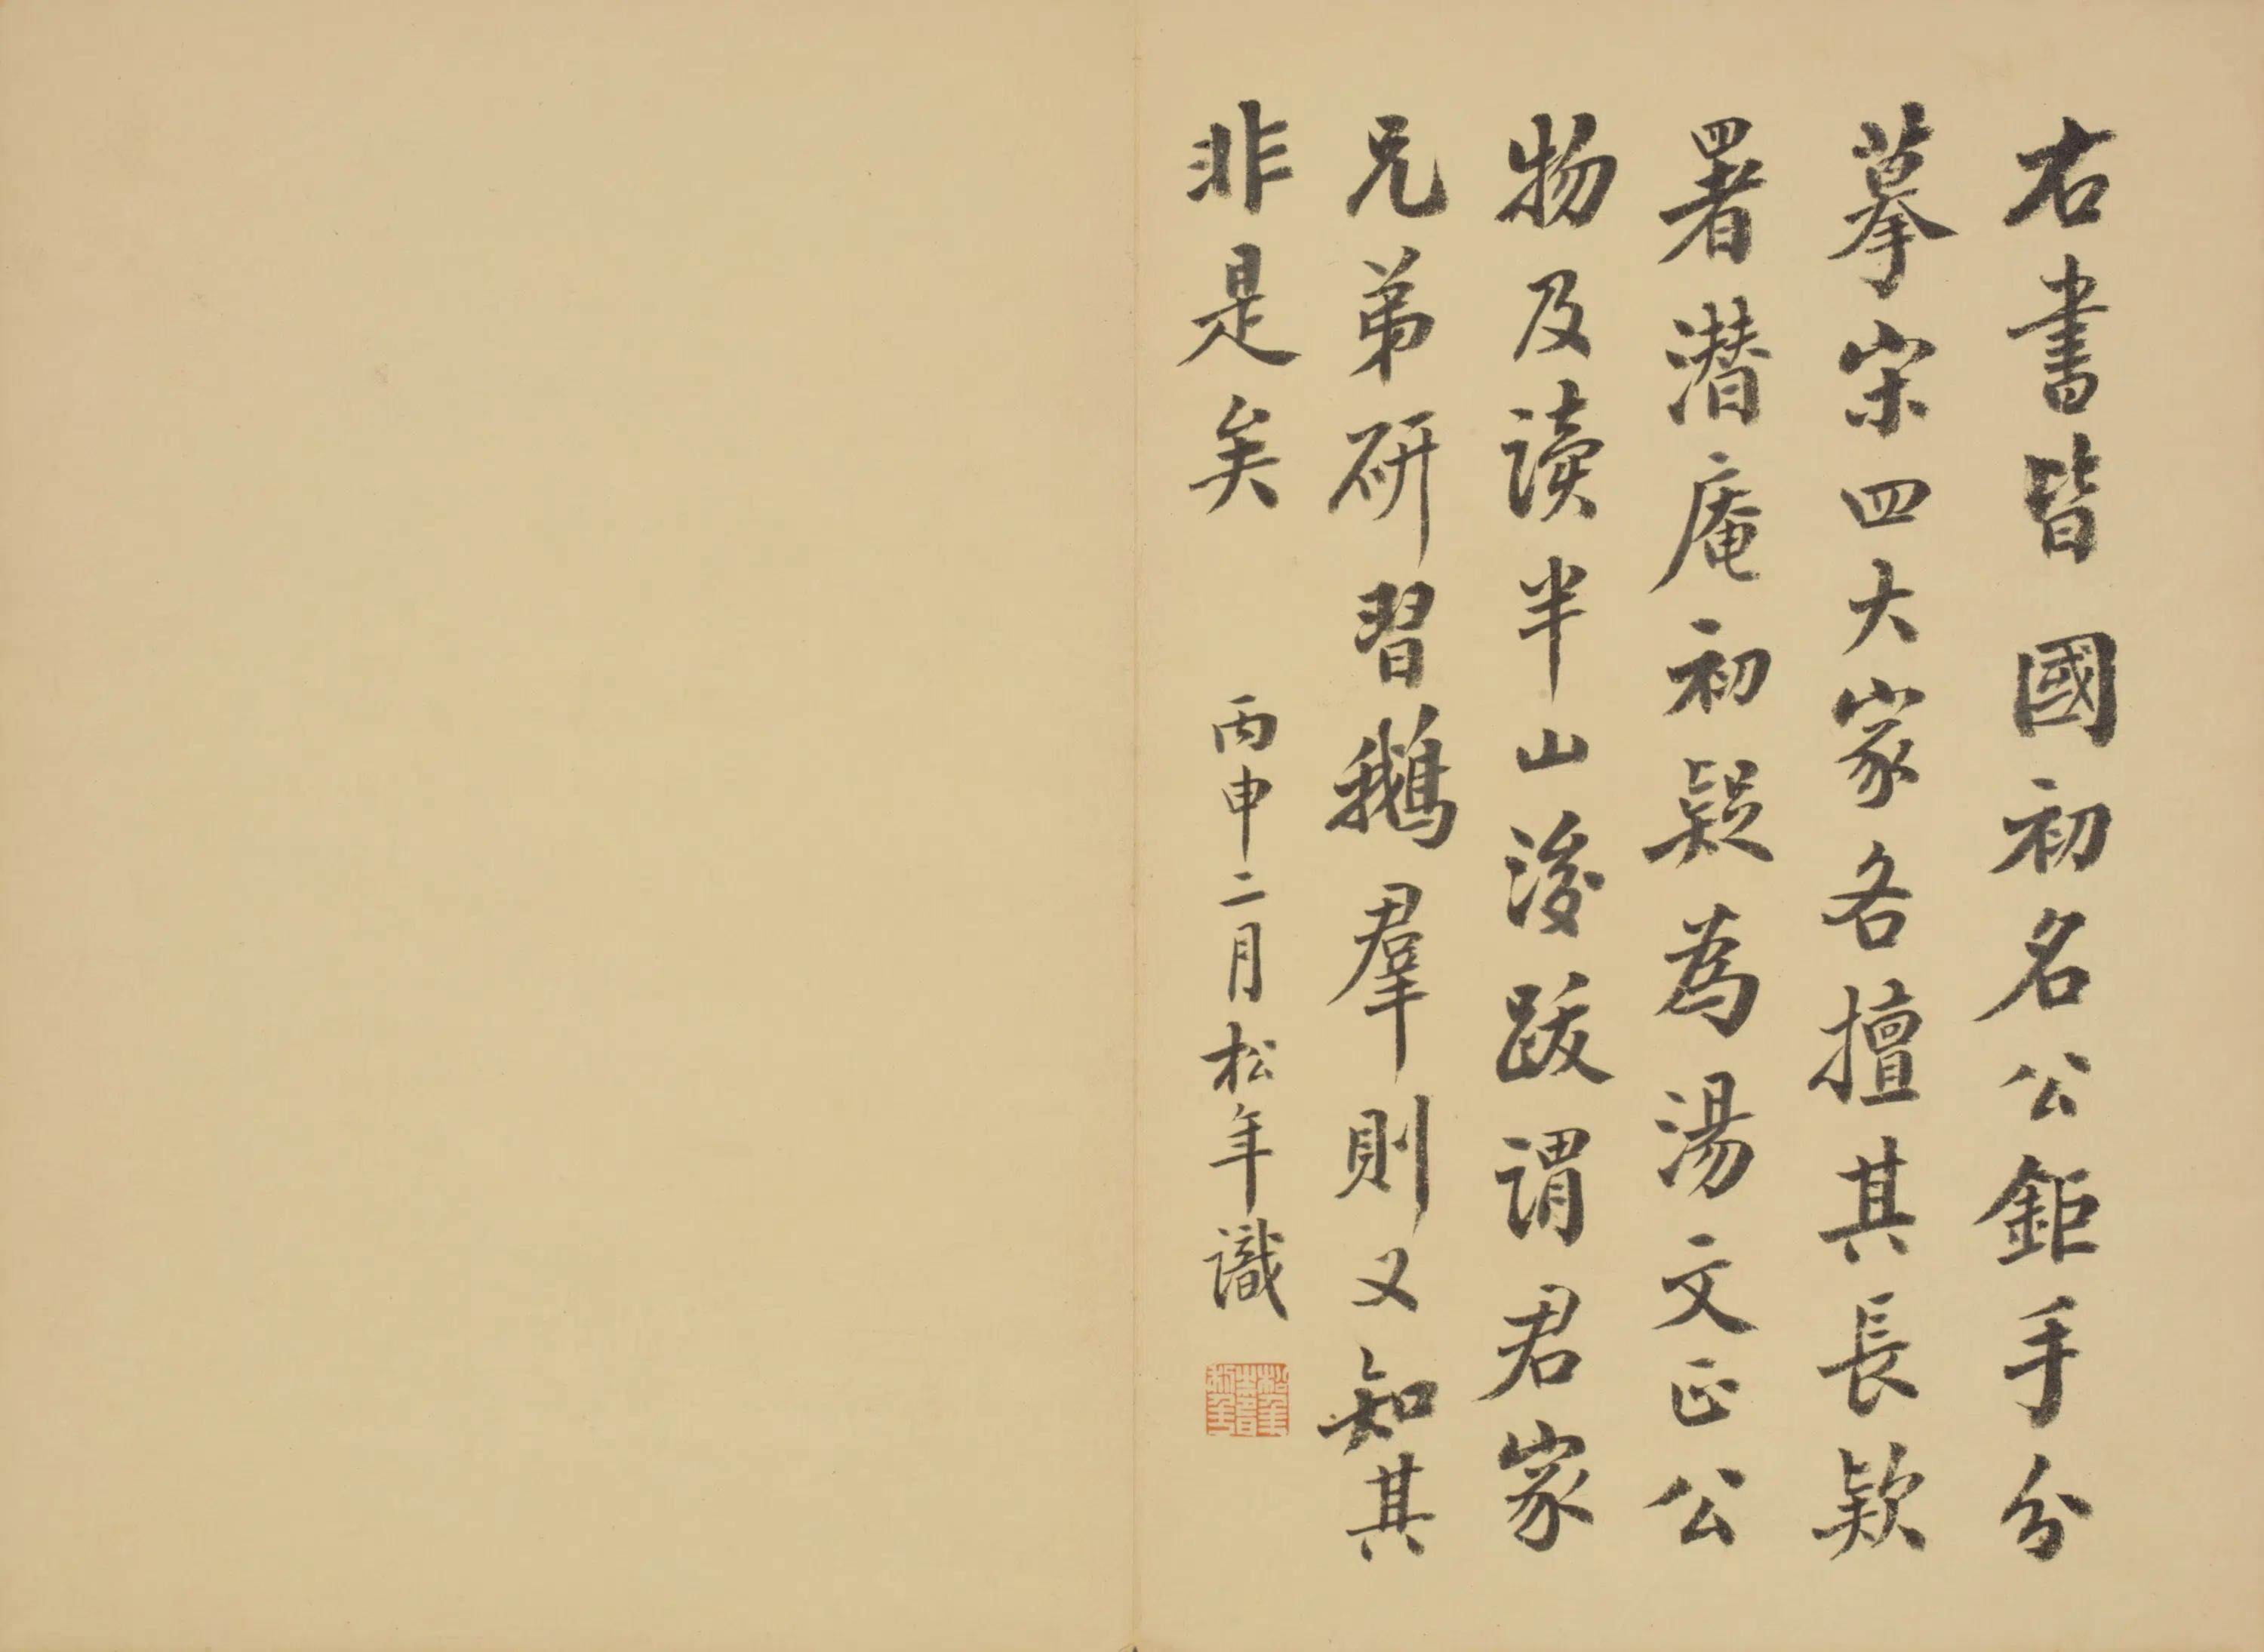 右書皆 國初名公鉅手分
摹宋四大家各擅其長欵
署潜庵初疑為湯文正公
物及讀半山後跋謂君家
兄弟研習鵝羣則又知其
非是矣 丙申二月松年識